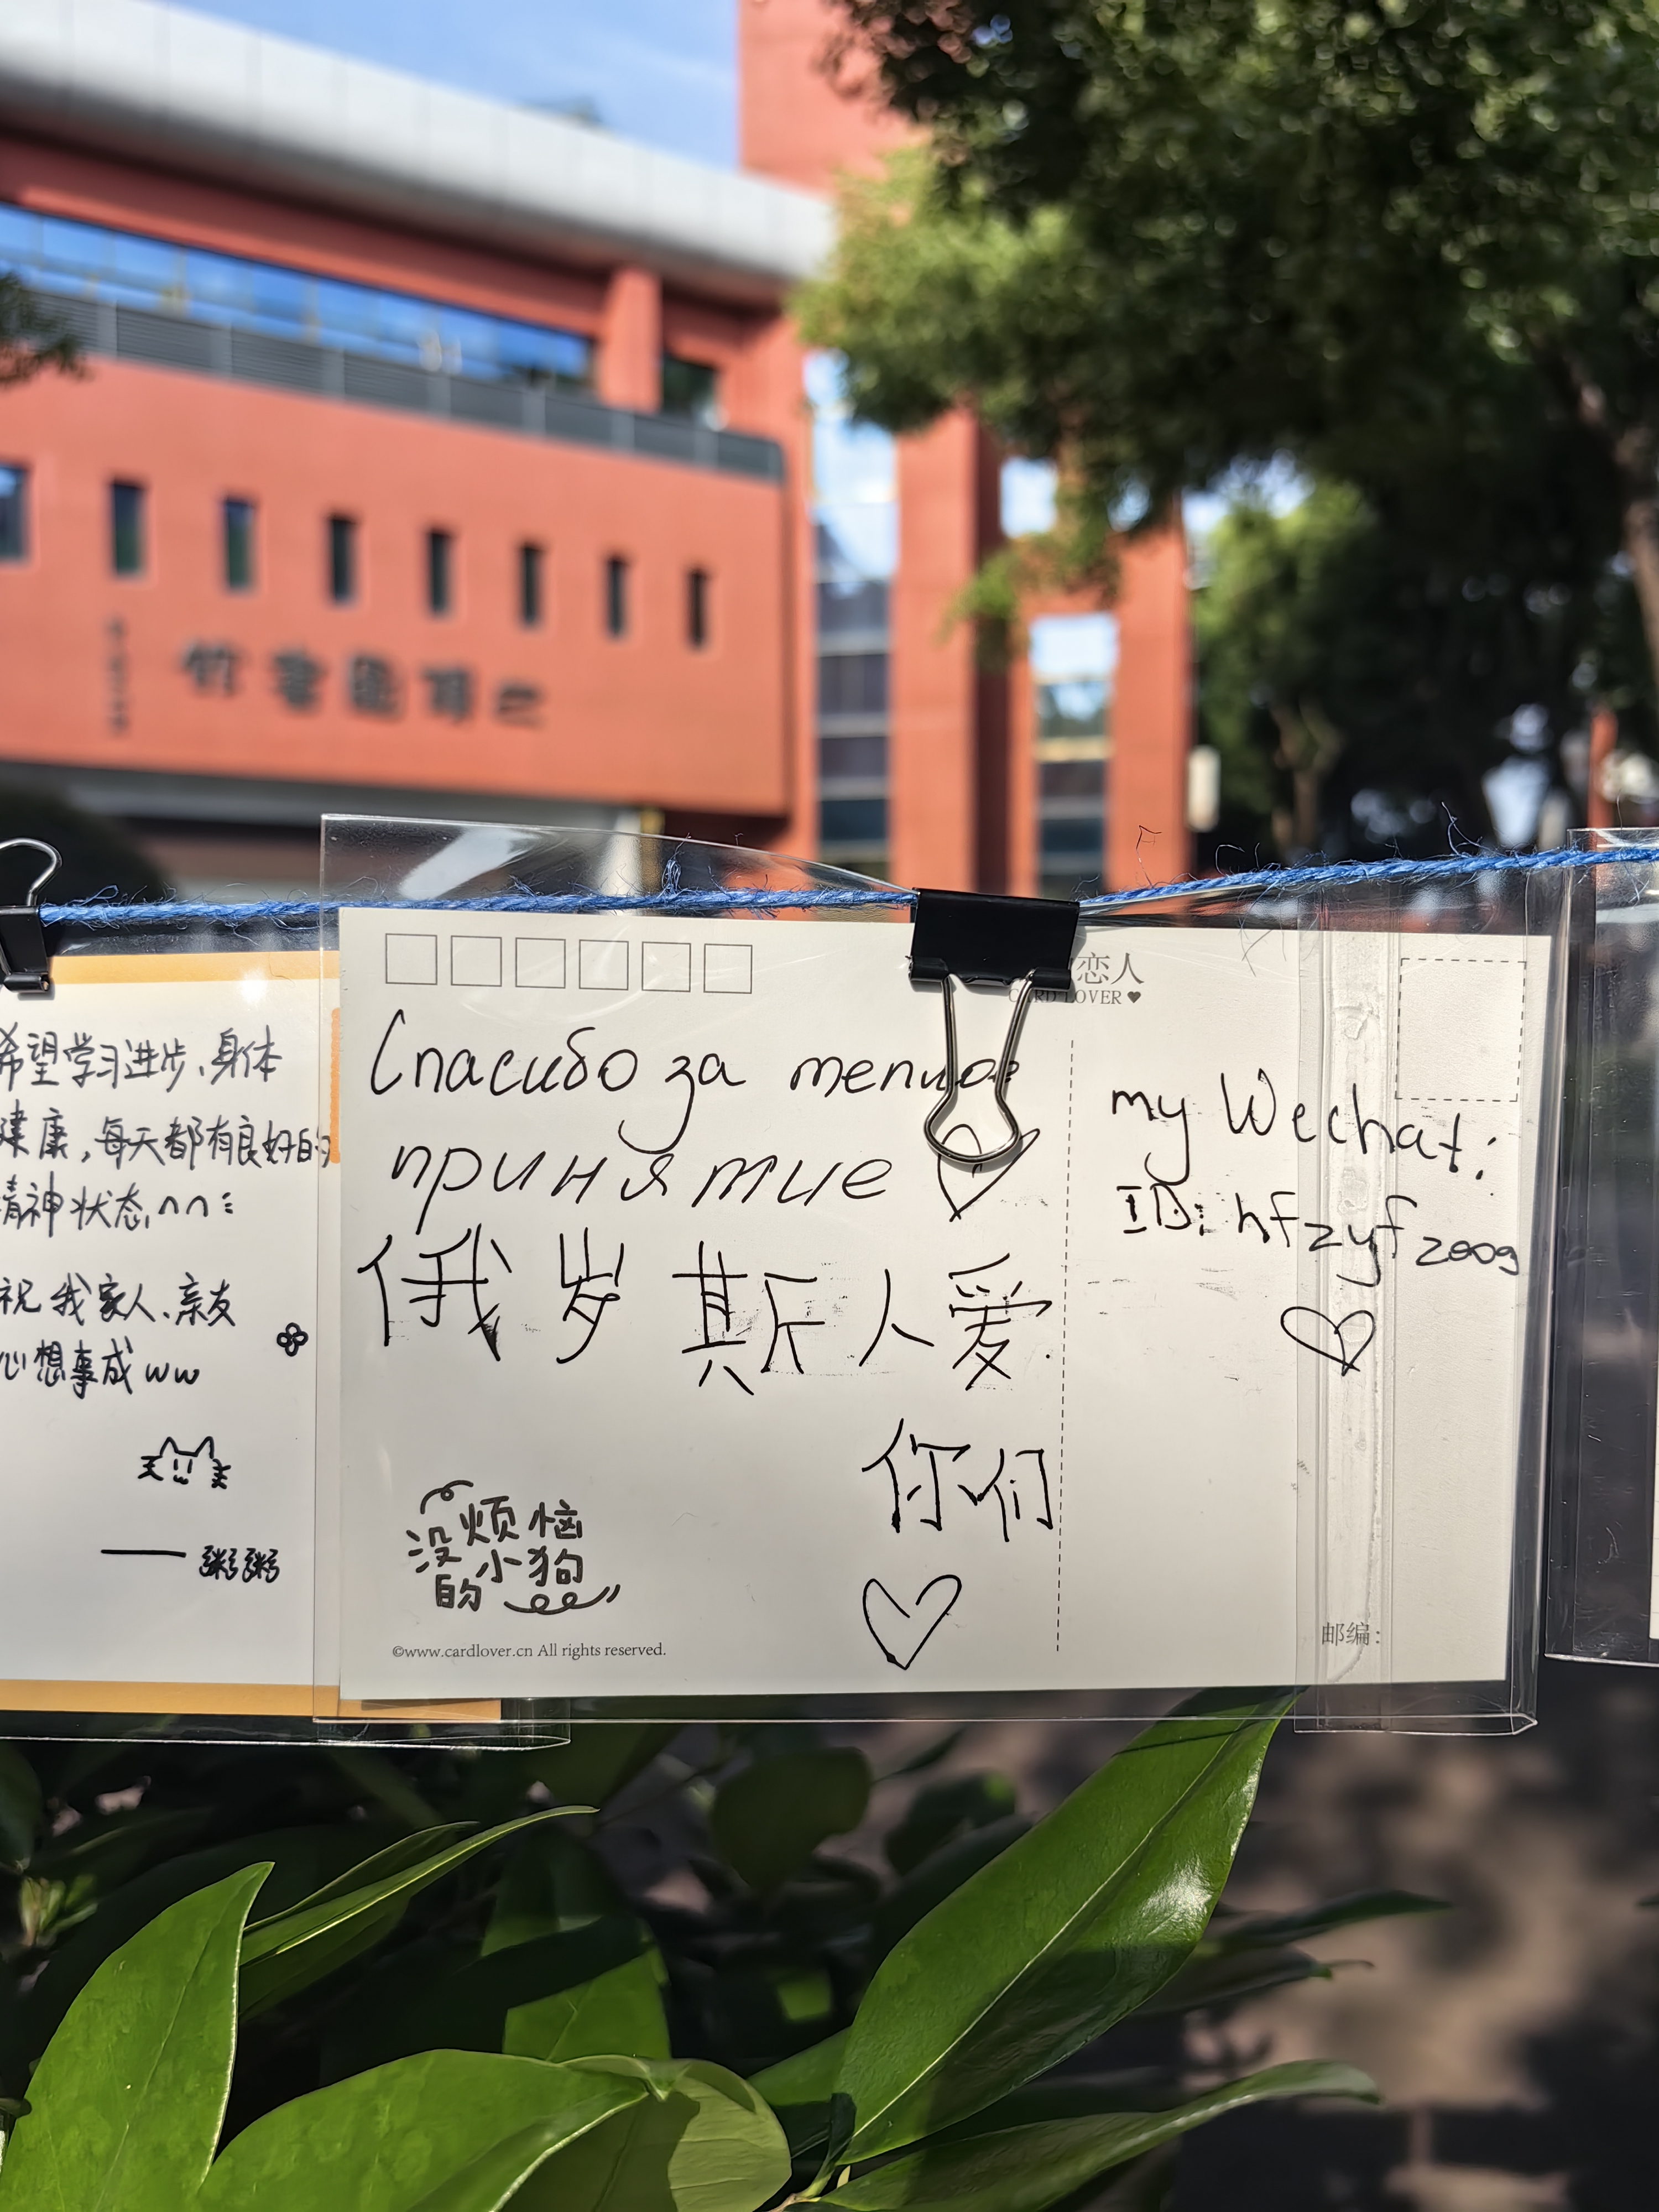 希望学习进步、身体
健康,每天都有良好的
精神状态、^^
祝我家人、亲友
心想事成ww
——粥粥
恋人
CARD LOVER
Спасибо за теплое
принятие
俄岁斯人爱
你们
没烦恼
的小狗
©www.cardlover.cn All rights reserved.
my Wechat:
ID: hfzyfz009
邮编: